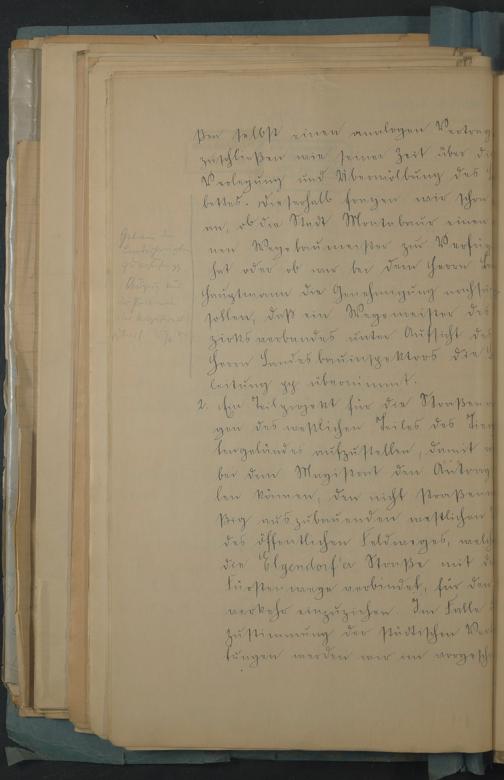 ßen selbst einen analogen Vertrag
zuschließen wie seiner Zeit über di
Verlegung und Überwölbung des
bettes. Dieserhalb fragen wir schon
an, ob die Stadt Montabaur einen
nen Wegebaumeister zu Verfüg
hat oder ob wir bei dem Herrn La
hauptmann die Genehmigung nachsu
sollen, daß ein Wegemeister des
zirksverbandes unter Aufsicht de
Herrn Landesbauinspektors die
leitung pp übernimmt.
2. Ein Teilprojekt für die Straßen
gen des westlichen Teiles des
lergeländes aufzustellen, damit
bei dem Magistrat den Antrag
len können, den nicht straßenm
ßig auszubauenden westlichen
des öffentlichen Feldweges, welch
die Elgendorf'er Straße mit d
Fürstenwege verbindet, für den
verkehr einzuziehen. Im Falle
Zustimmung der städtischen Ver
tungen werden wir im vorgesch